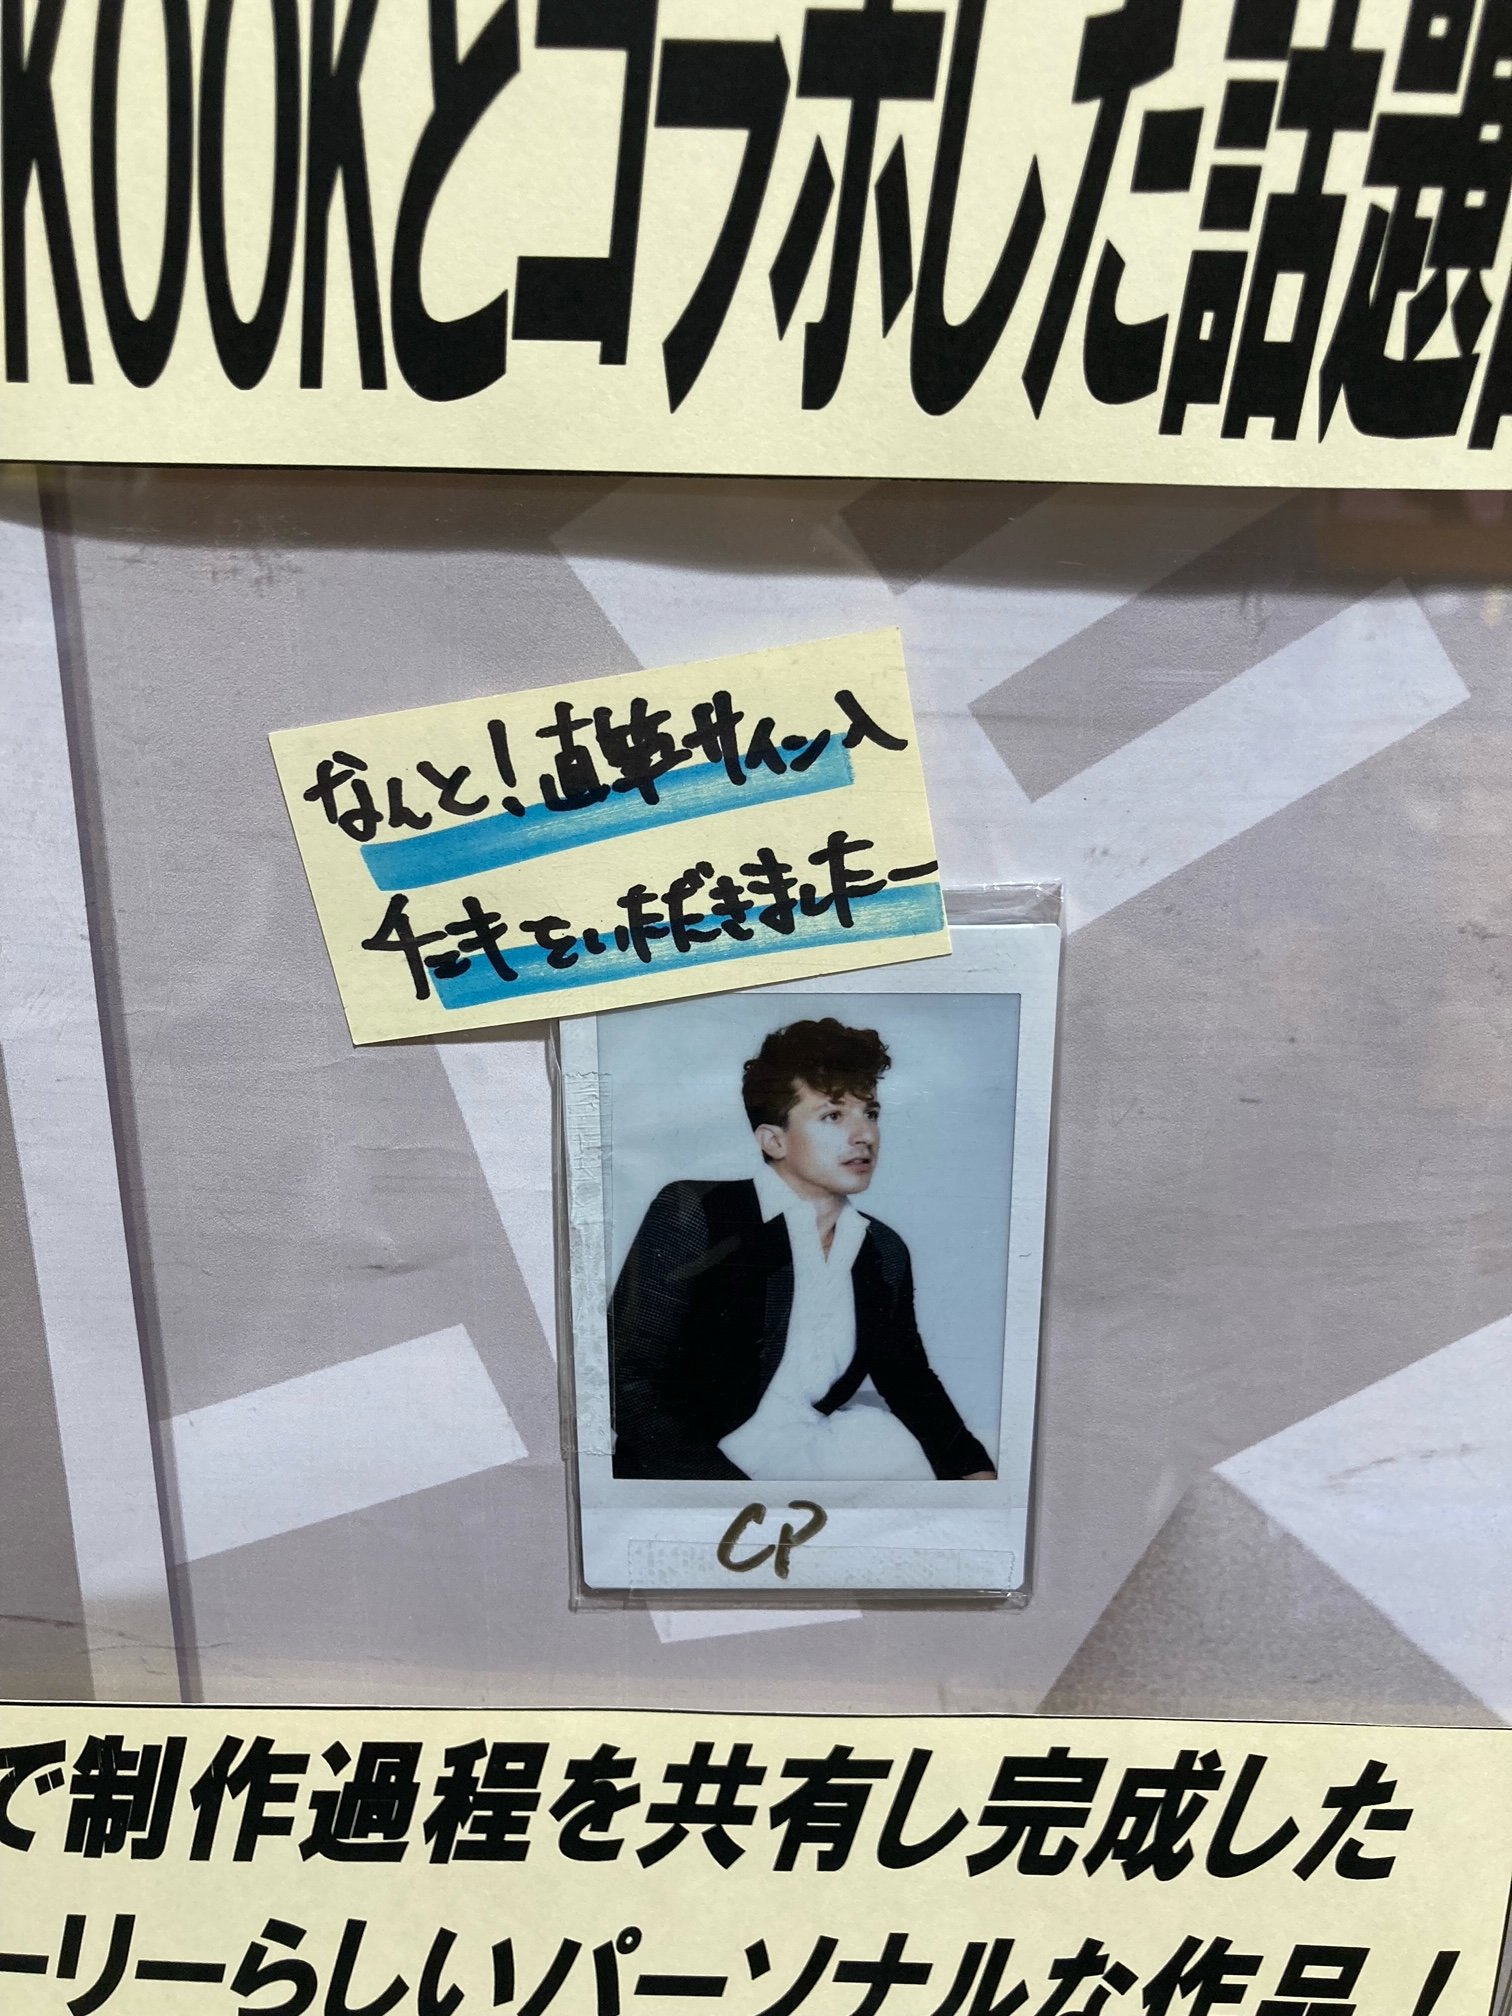 KOOKとコラボした話題
なんと!直筆サイン入
チェキをいただきましたー
CP
で制作過程を共有し完成した
ーリーらしいパーソナルな作品!